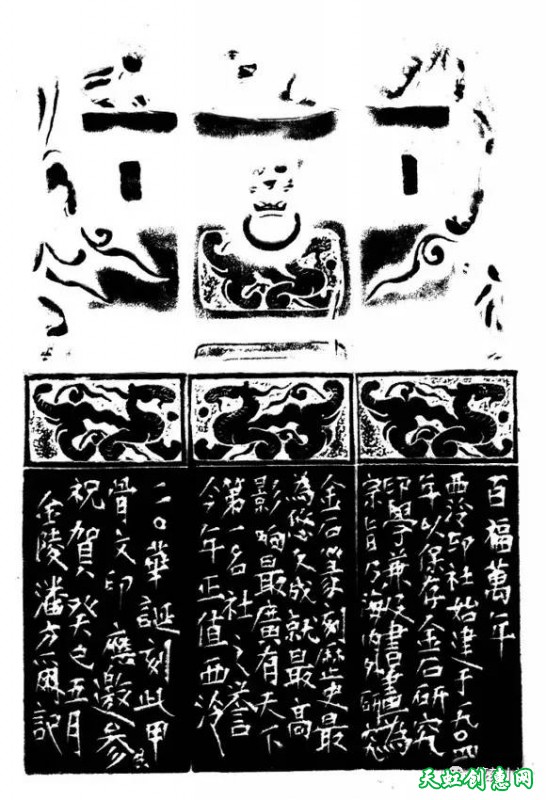 百福萬年
西泠印社始建于一九〇四
年以保存金石研究
印學兼及書畫為
宗旨乃海内外研究
金石篆刻歷史最
為悠久成就最高
影响最廣有天下
第一名社之誉
今年正值西泠
一一〇華誕刻此甲
骨文印應邀參
祝賀癸巳五月
金陵潘方爾記
天虹创意网